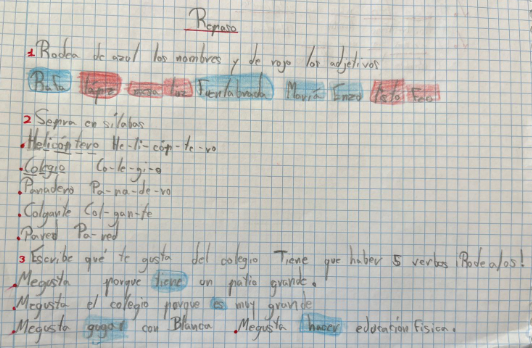 Repaso
1 Rodea de azul los nombres y de rojo los adjetivos
Rafa lápiz mesa luz Fuenlabrada María Enzo Feo
2 Separa en sílabas
.Helicóptero He-li-cóp-te-ro
.Colegio Co-le-gi-o
.Panadero Pa-na-de-ro
.Colgante Col-gan-te
.Pared Pa-red
3 Escribe qué te gusta del colegio Tiene que haber 5 verbos ¡Rodealos!
.Megusta porque tiene un patio grande.
.Megusta el colegio porque es muy grande
.Megusta gugar con Blanca .Megusta hacer educación fisica.